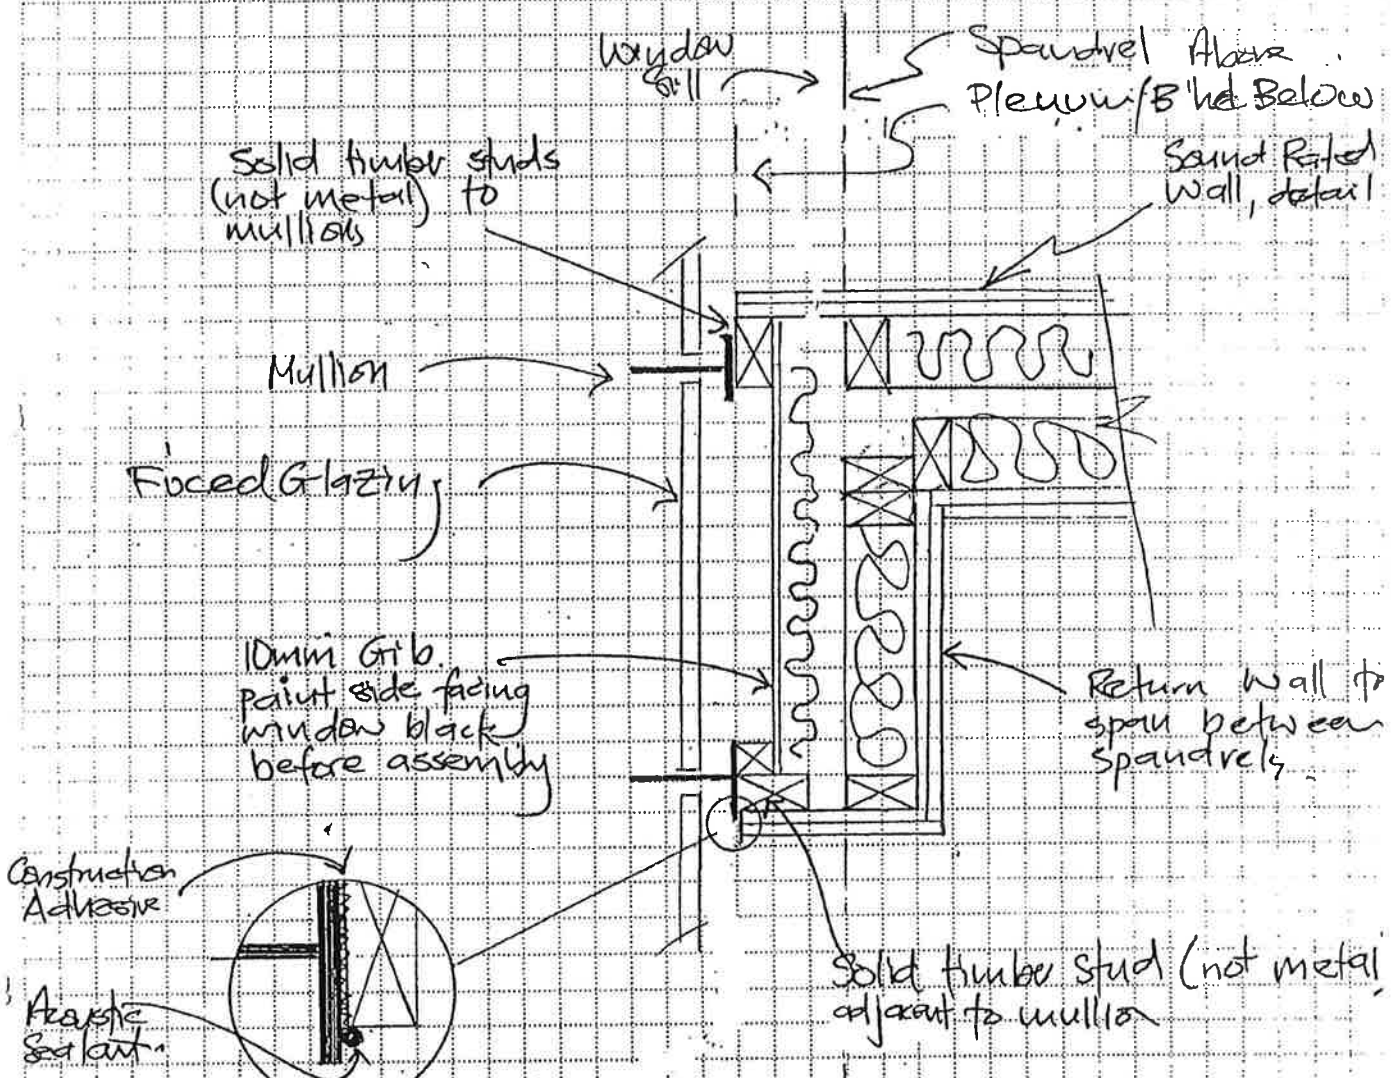 Window
Sill
Spandrel Above
Plenum/B'hd Below
Sound Rated
Wall, detail
Solid timber studs
(not metal) to
mullions
Mullion
Fixed Glazing
10mm Gib.
paint side facing
window black
before assembly
Return Wall to
span between
spandrels
Construction
Adhesive
Acoustic
Sealant.
Solid timber stud (not metal
adjacent to mullion